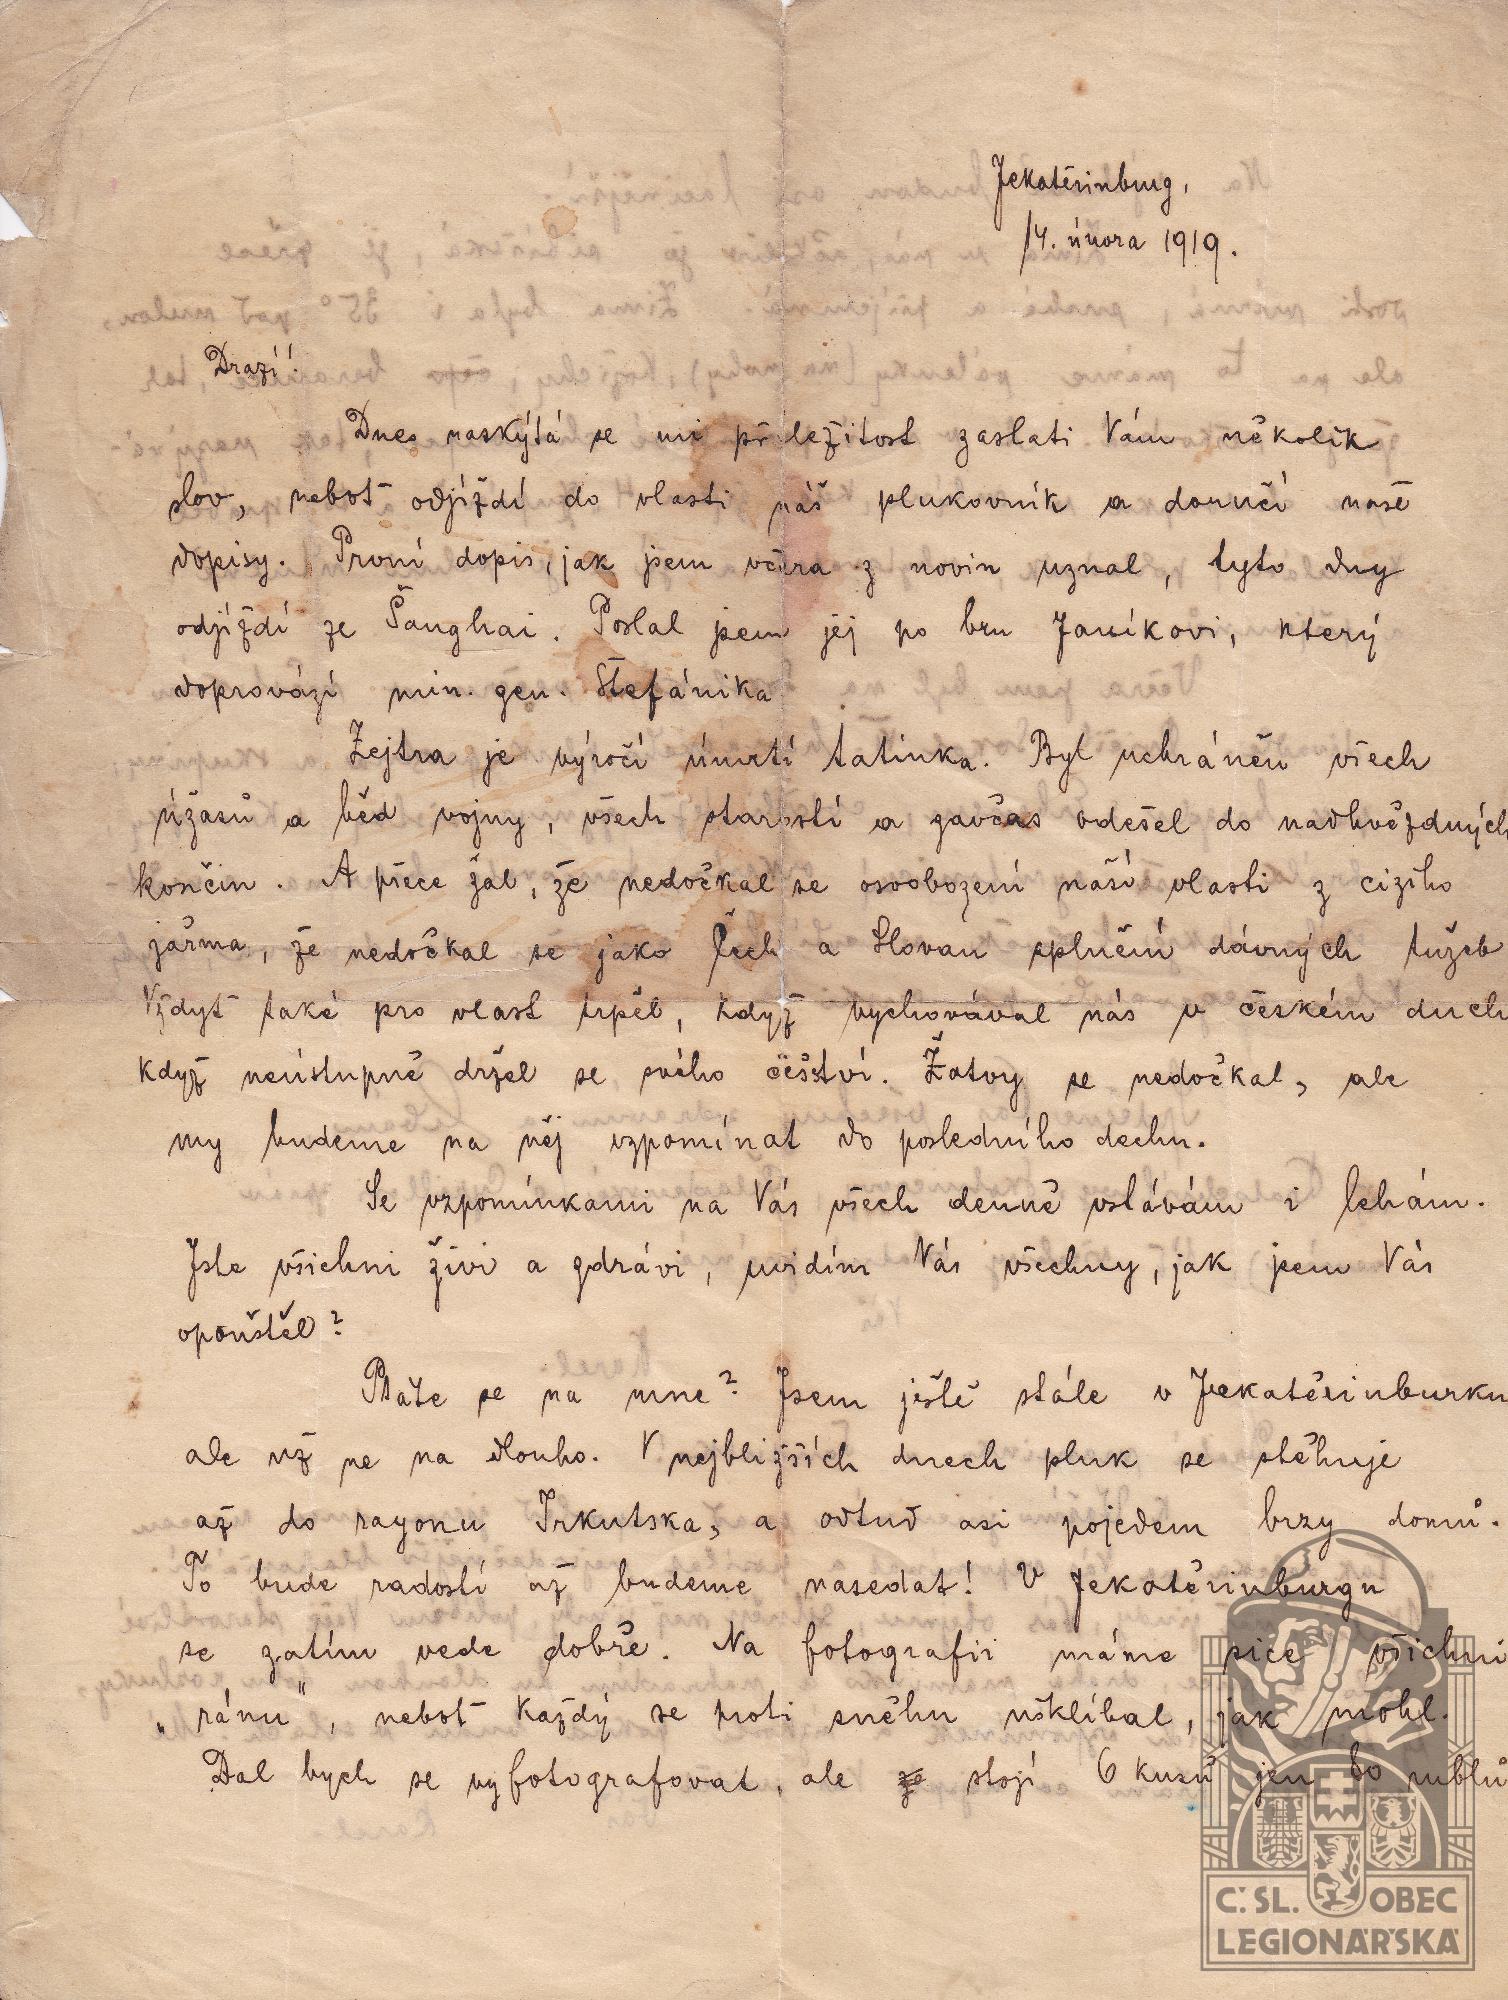 Jekatěrinburg,
14. února 1919.
Drazí!
Dnes naskýtá se mi příležitost zaslati Vám několik
slov, neboť odjíždí do vlasti náš plukovník a doručí naše
dopisy. První dopis, jak jsem včera z novin uznal, tyto dny
odjíždí ze Šanghai. Poslal jsem jej po bru Janíkovi, který
doprovází min. gen. Štefánika
Zejtra je výročí úmrtí tatínka. Byl uchráněn všech
úžasů a běd vojny, všech starostí a zavčas odešel do nadhvězdných
končin. A přece žal, že nedočkal se osvobození naší vlasti z cizího
jařma, že nedočkal se jako Čech a Slovan splnění dávných tužeb
Vždyť také pro vlast trpěl, když vychovával nás v českém duch
když neústupně držel se svého češství. Žatvy se nedočkal, ale
my budeme na něj vzpomínat do posledního dechu.
Se vzpomínkami na Vás všech denně vstávám i lehám.
Jste všichni živi a zdrávi, uvidím Vás všechny, jak jsem Vás
opouštěl?
Ptáte se na mne? Jsem ještě stále v Jekatěrinburku
ale už ne na dlouho. V nejbližších dnech pluk se stěhuje
až do rayonu Irkutska, a odtud asi pojedem brzy domů.
To bude radostí až budeme nasedat! V Jekatěrinburgu
se zatím vede dobře. Na fotografii máme sice všichni
„ránu", neboť každý se proti sněhu ušklíbal, jak mohl.
Dal bych se vyfotografovat, ale stojí 6 kusů jen 60 rublů
Č. SL. OBEC
LEGIONÁŘSKÁ